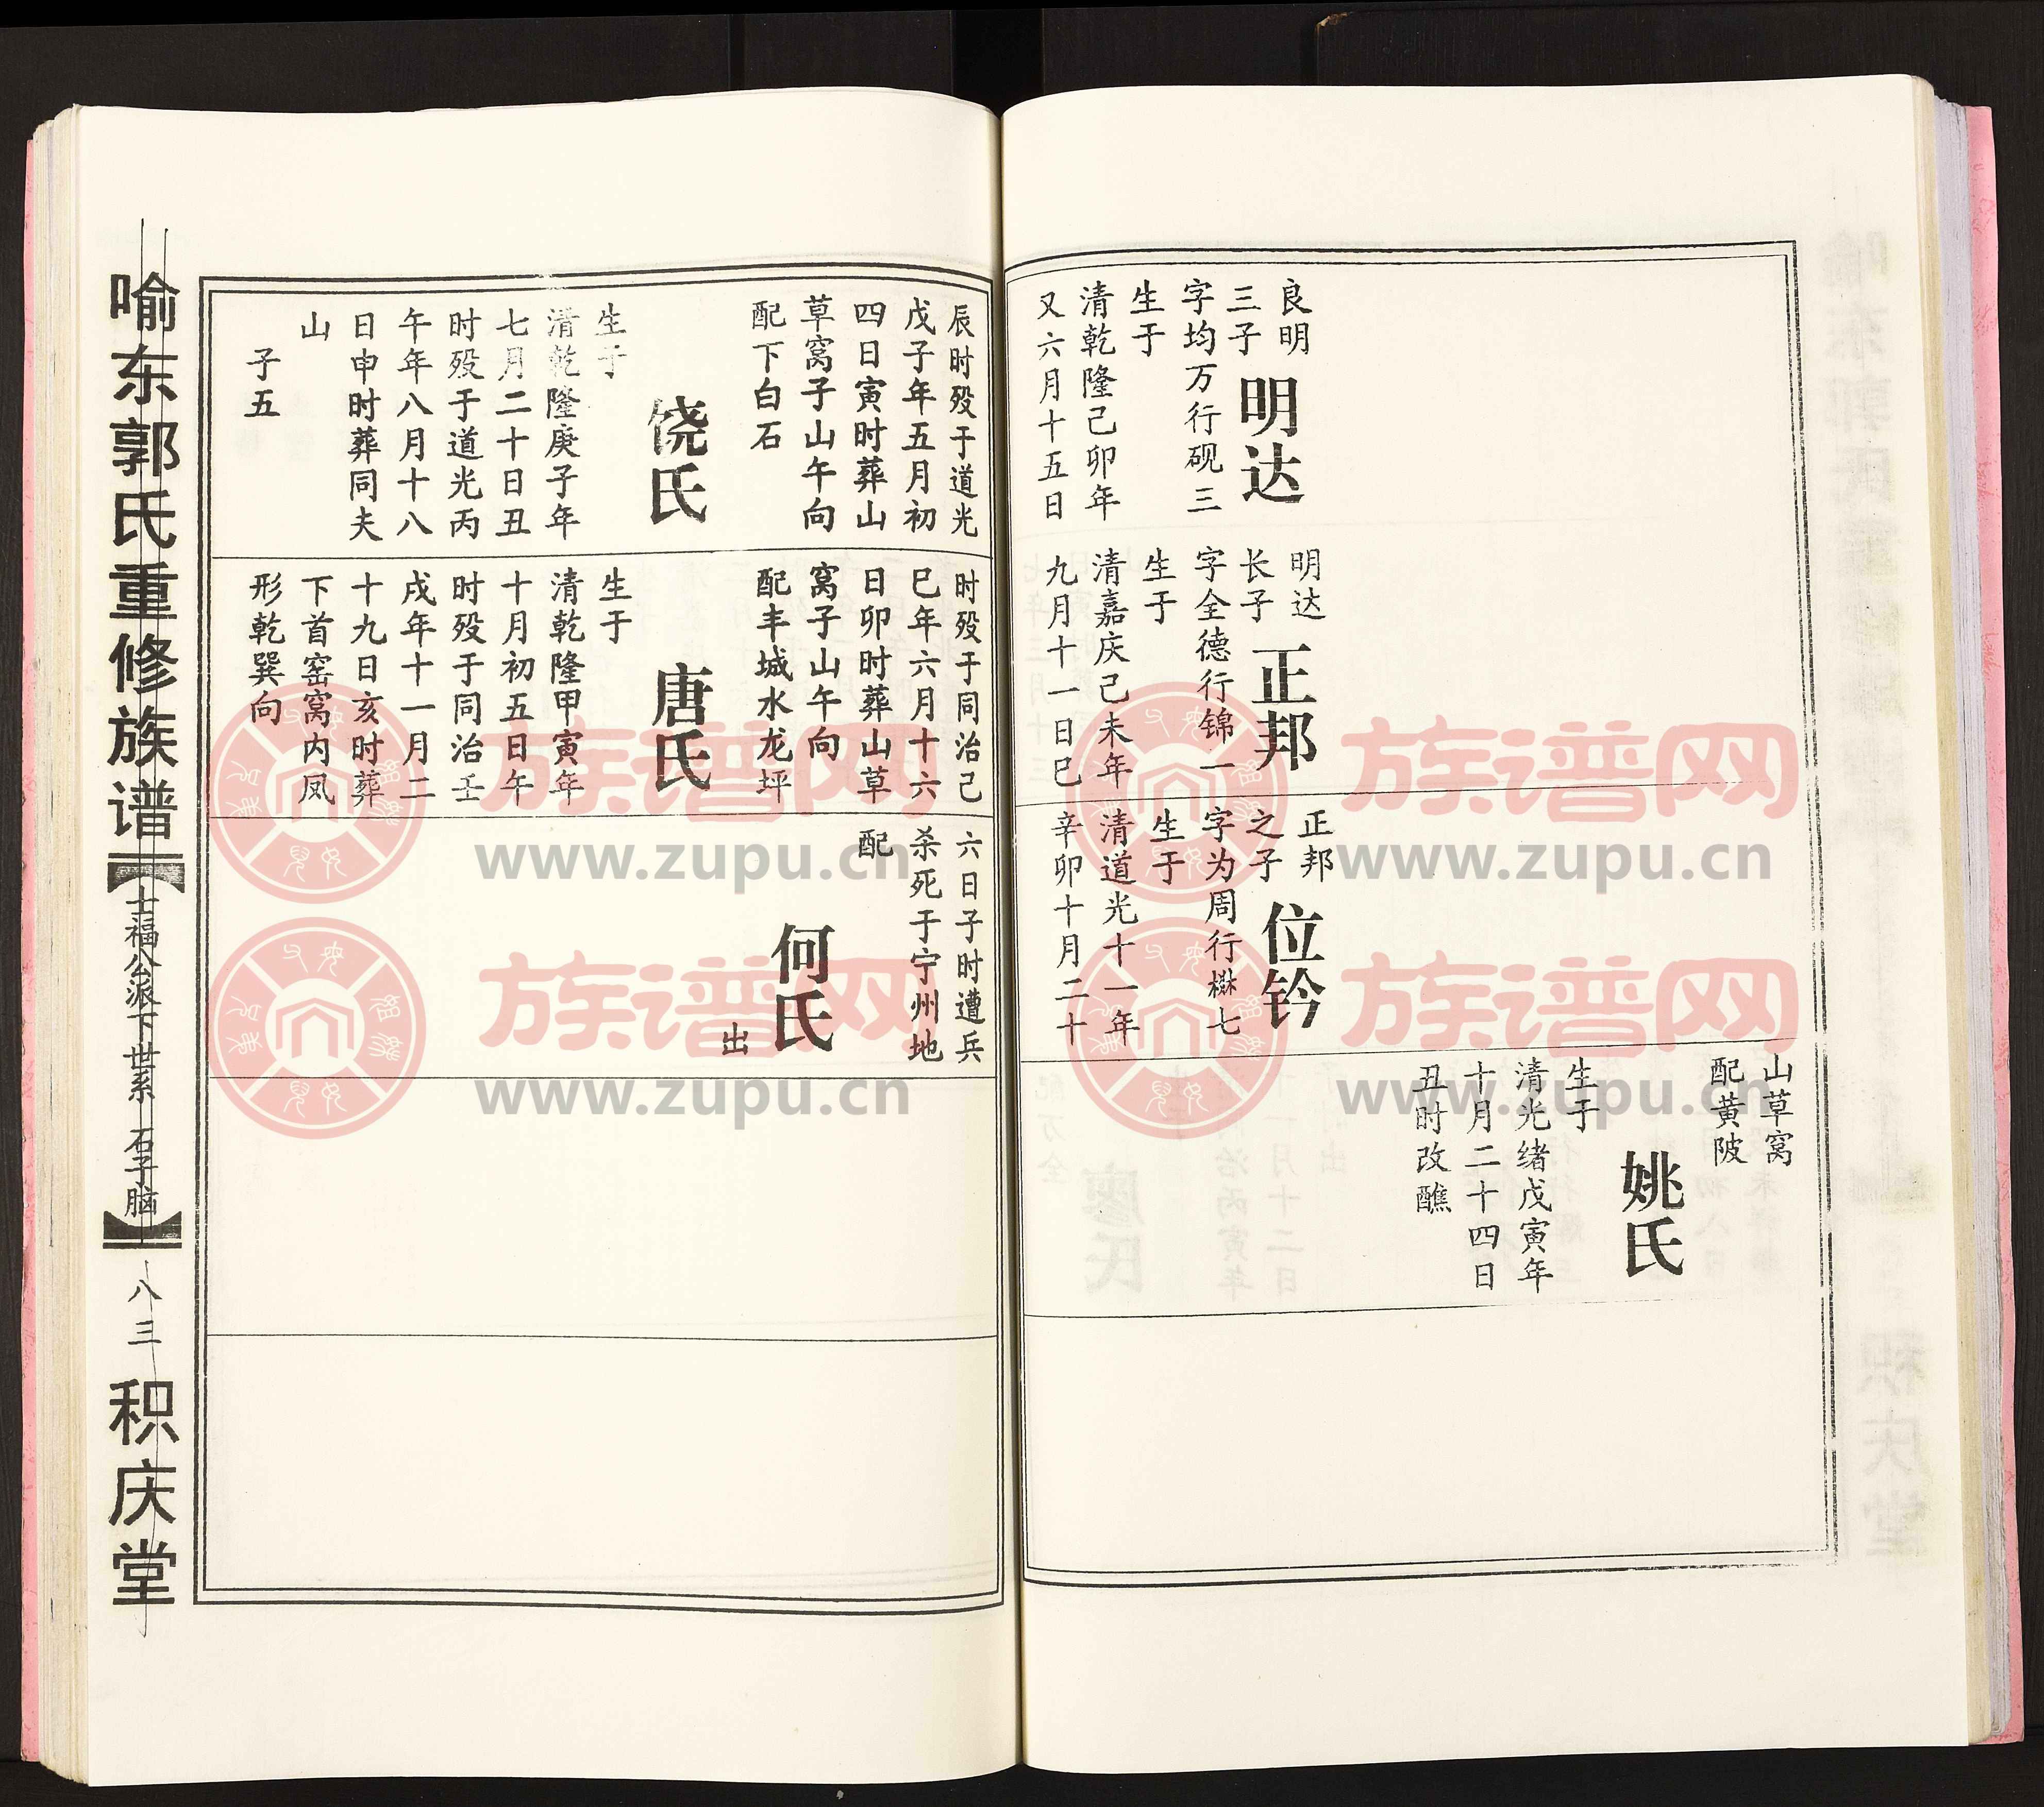 良明
三子
明达
字均万行砚三
生于
清乾隆己卯年
又六月十五日
明达
长子
正邦
字全德行锦一
生于
清嘉庆己未年
九月十一日巳
正邦
之子
位钤
字为周行楙七
生于
清道光十一年
辛卯十月二十
山草窝
配黄陂
姚氏
生于
清光绪戊寅年
十月二十四日
丑时改醮
辰时殁于道光
戊子年五月初
四日寅时葬山
草窝子山午向
配下白石
饶氏
生于
清乾隆庚子年
七月二十日丑
时殁于道光丙
午年八月十八
日申时葬同夫
山
子五
时殁于同治己
巳年六月十六
日卯时葬山草
窝子山午向
配丰城水龙坪
唐氏
生于
清乾隆甲寅年
十月初五日午
时殁于同治壬
戌年十一月二
十九日亥时葬
下首窑窝内凤
形乾巽向
六日子时遭兵
杀死于宁州地
配
何氏
出
喻东郭氏重修族谱
士福公派下世系 石子脑
八三
积庆堂
族谱网
www.zupu.cn
族谱网
www.zupu.cn
族谱网
www.zupu.cn
族谱网
www.zupu.cn